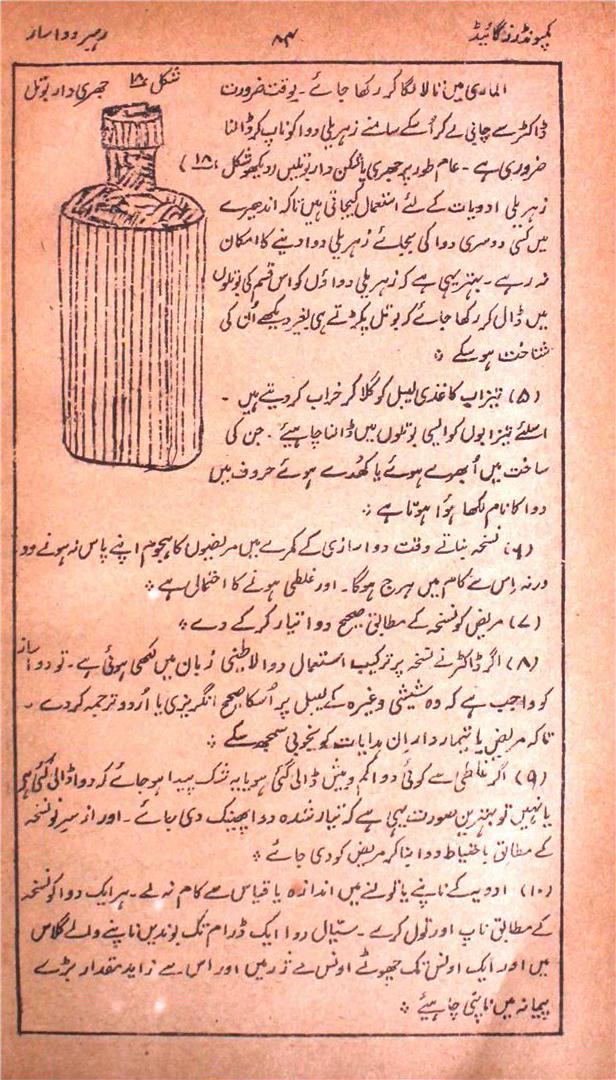 کمپونڈرز گائیڈ
۸۴
رہبر دوا ساز
شکل ۱۸ جھری دار بوتل
الماری میں تالا لگا کر رکھا جائے ۔ بوقت ضرورت
ڈاکٹر سے چابی لے کر اُسکے سامنے زہریلی دوا کو ناپ کر ڈالنا
ضروری ہے ۔ عام طور پر جھری یا شکن دار بوتلیں (دیکھو شکل ۱۸)
زہریلی ادویات کے لئے استعمال کیجاتی ہیں تاکہ اندھیرے
میں کسی دوسری دوا کی بجائے زہریلی دوا دینے کا امکان
نہ رہے ۔ بہتر یہی ہے کہ زہریلی دواؤں کو اس قسم کی بوتلوں
میں ڈال کر رکھا جائے کہ بوتل پکڑتے ہی بغیر دیکھے اُن کی
شناخت ہو سکے ؞
(۵) تیزاب کاغذی لیبل کو گلا کر خراب کر دیتے ہیں ۔
اسلئے تیزابوں کو ایسی بوتلوں میں ڈالنا چاہیئے ۔ جن کی
ساخت میں اُبھرے ہوئے یا کھُدے ہوئے حروف میں
دوا کا نام لکھا ہؤا ہوتا ہے ؞
(۶) نسخہ بناتے وقت دوا سازی کے کمرے میں مریضوں کا ہجوم اپنے پاس نہ ہونے دو
ورنہ اِس سے کام میں ہرج ہوگا ۔ اور غلطی ہونے کا احتمال ہے ؞
(۷) مریض کو نسخہ کے مطابق صحیح دوا تیار کر کے دے ؞
(۸) اگر ڈاکٹر نے نسخہ پر ترکیب استعمال دوا لاطینی زبان میں لکھی ہوئی ہے ۔ تو دوا ساز
کو واجب ہے کہ وہ شیشی وغیرہ کے لیبل پر اُسکا صحیح انگریزی یا اُردو ترجمہ کر دے ۔
تاکہ مریض یا تیمار دار ان ہدایات کو بخوبی سمجھ سکے ؞
(۹) اگر غلطی سے کوئی دوا کم و بیش ڈالی گئی ہو یا یہ شک پیدا ہو جائے کہ دوا ڈالی گئی ہے
یا نہیں تو بہترین صورت یہی ہے کہ تیار شدہ دوا پھینک دی جائے ۔ اور از سر نو نسخہ
کے مطابق باحتیاط دوا بنا کر مریض کو دی جائے ؞
(۱۰) ادویہ کے ناپنے یا تولنے میں اندازہ یا قیاس سے کام نہ لے ۔ ہر ایک دوا کو نسخہ
کے مطابق ناپ اور تول کرے ۔ سیّال دوا ایک ڈرام تک بوندیں ناپنے والے گلاس
میں اور ایک اونس تک چھوٹے اونس گلاس میں اور اس سے زاید مقدار بڑے
پیمانہ میں ناپنی چاہیئے ؞